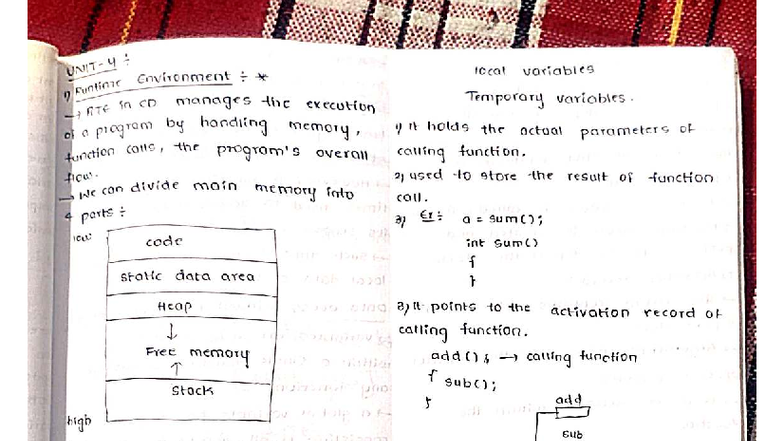 UNIT-4 ÷
1) Runtime Environment ÷ *
→ RTE in CD manages the execution
of a program by handling memory,
function calls, the program's overall
flow.
→ We can divide main memory into
4 parts ÷
low
code
static data area
Heap
↓
Free memory
↑
Stack
high
local variables
Temporary variables.
1) it holds the actual parameters of
calling function.
2) used to store the result of function
call.
3) Ex ÷ a = sum();
int sum()
{
}
3) it points to the activation record of
calling function.
add(); → calling function
{ sub();
}
add
sub